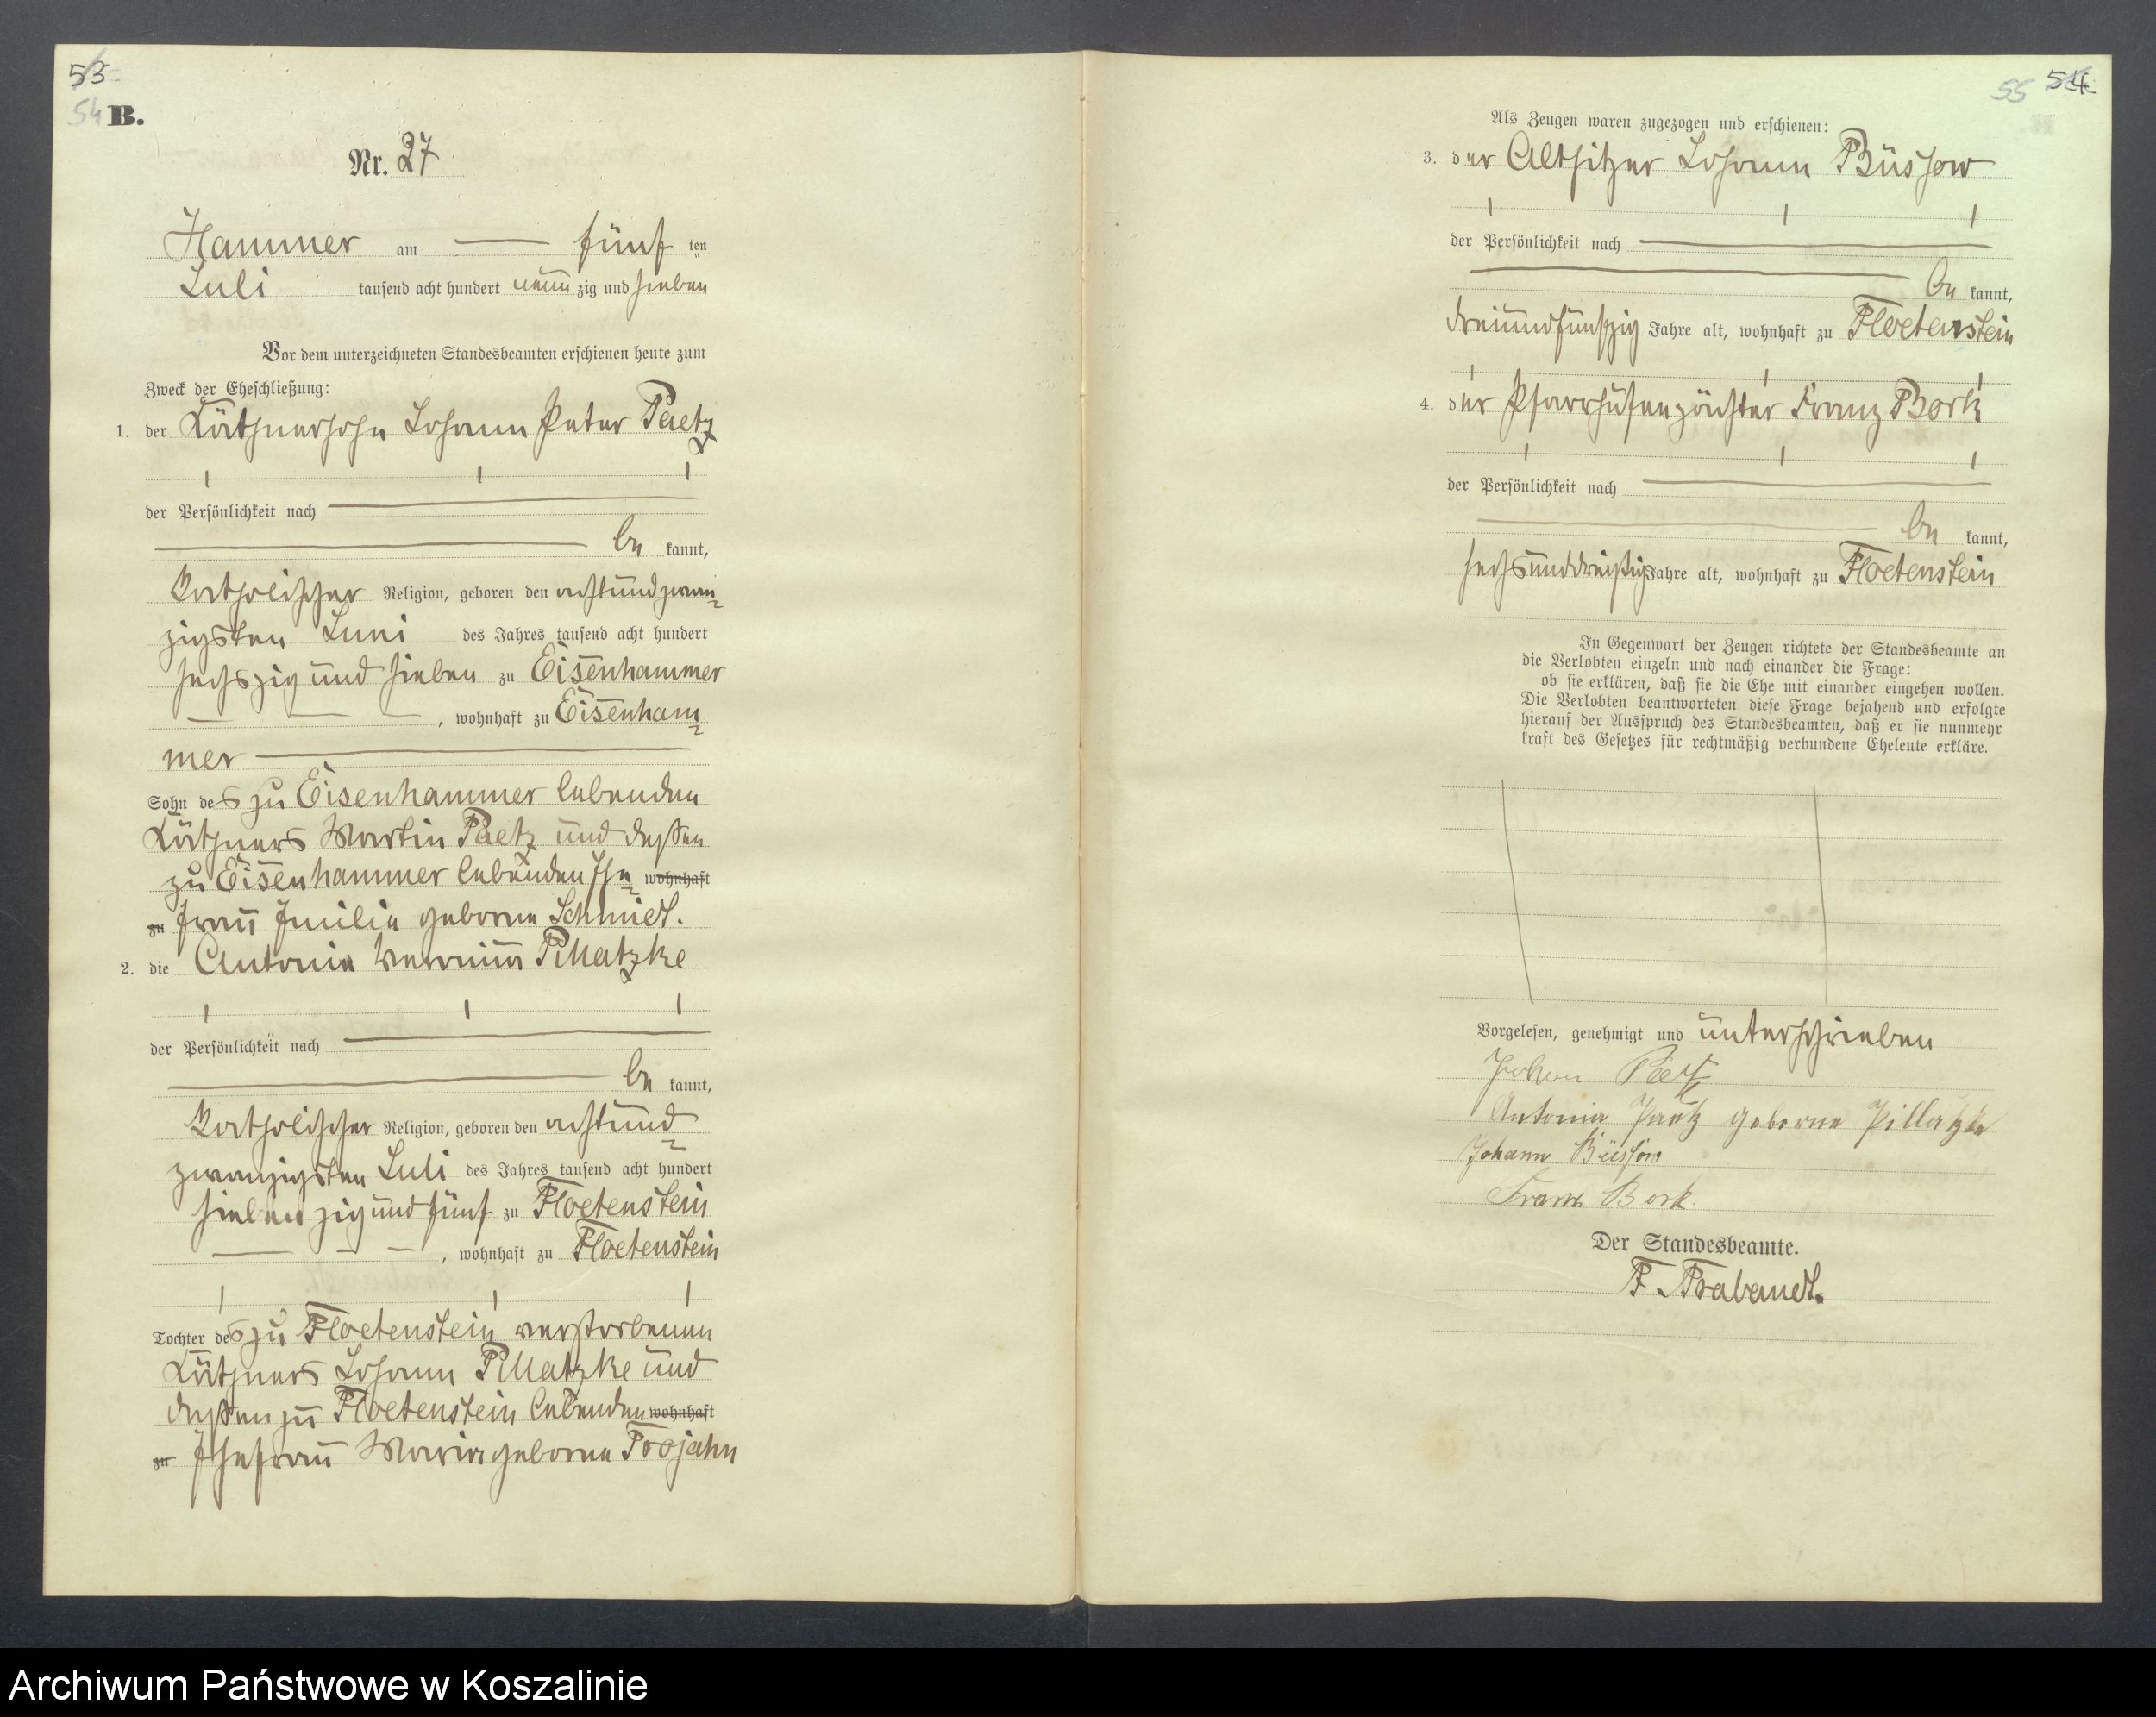 53
54 B.
Nr. 27
Hammer am — fünf ten
Juli tausend acht hundert neun zig und sieben
Vor dem unterzeichneten Standesbeamten erschienen heute zum
Zweck der Eheschließung:
1. der Käthnersohn Johann Peter Paetz
der Persönlichkeit nach
be kannt,
katholischer Religion, geboren den achtundzwan-
zigsten Juni des Jahres tausend acht hundert
sechszig und sieben zu Eisenhammer
, wohnhaft zu Eisenham-
mer
Sohn des zu Eisenhammer lebenden
Käthners Martin Paetz und dessen
zu Eisenhammer lebenden Ehe- wohnhaft
zu frau Emilie geborne Schmidt.
2. die Antonie Veronika Pillatzke
der Persönlichkeit nach
be kannt,
katholischer Religion, geboren den achtund-
zwanzigsten Juli des Jahres tausend acht hundert
sieben zig und fünf zu Floetenstein
, wohnhaft zu Floetenstein
Tochter des zu Floetenstein verstorbenen
Käthners Johann Pillatzke und
dessen zu Floetenstein lebenden wohnhaft
zu Ehefrau Maria geborne Trojahn
55 54
Als Zeugen waren zugezogen und erschienen:
3. der Altsitzer Johann Büssow
der Persönlichkeit nach
be kannt,
dreiundfünfzig Jahre alt, wohnhaft zu Floetenstein
4. der Pfarrhufenpächter Franz Bork
der Persönlichkeit nach
be kannt,
sechsunddreißig Jahre alt, wohnhaft zu Floetenstein
In Gegenwart der Zeugen richtete der Standesbeamte an
die Verlobten einzeln und nach einander die Frage:
ob sie erklären, daß sie die Ehe mit einander eingehen wollen.
Die Verlobten beantworteten diese Frage bejahend und erfolgte
hierauf der Ausspruch des Standesbeamten, daß er sie nunmehr
kraft des Gesetzes für rechtmäßig verbundene Eheleute erkläre.
Vorgelesen, genehmigt und unterschrieben
Johann Paetz
Antonia Paetz geborne Pillatzke
Johann Büssow
Franz Bork.
Der Standesbeamte.
F. Brabandt.
Archiwum Państwowe w Koszalinie